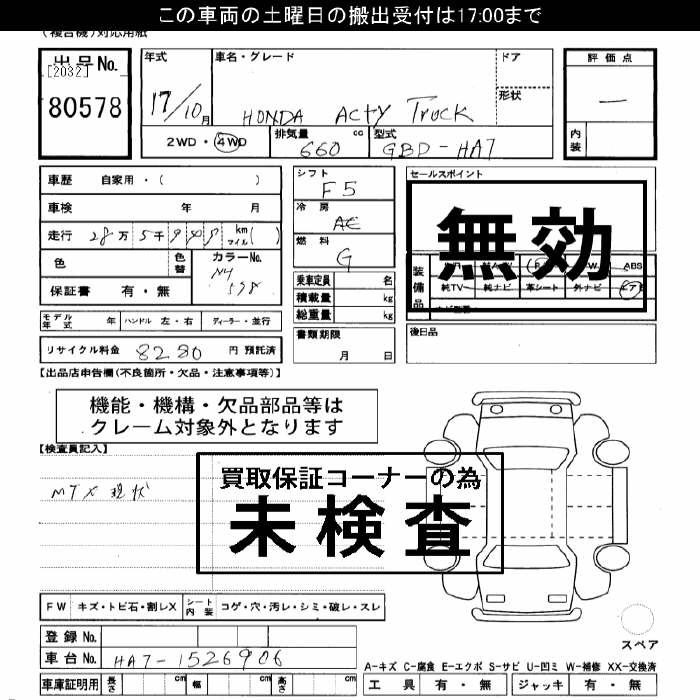 この車両の土曜日の搬出受付は17:00まで
(複合機)対応用紙
出品No.
[2032]
80578
年式
17/10月
車名・グレード
HONDA ACTY Truck
ドア
形状
評価点
—
内装
2WD・4WD
排気量
660 cc
型式
GBD-HA7
車歴 自家用・( )
車検 年 月
走行 28万 5千 9 km マイル( )
色
色替
カラーNo.
NH 578
保証書 有・無
シフト
F5
冷房
AC
燃料
G
乗車定員 名
積載量 kg
総重量 kg
セールスポイント
無効
装備品
ABS
純TV 純ナビ 革シート 外ナビ エアB
モデル年式 年 ハンドル 左・右 ディーラー・並行
リサイクル料金 8280 円 預託済
書類期限
月 日
後日品
【出品店申告欄(不良箇所・欠品・注意事項等)】
機能・機構・欠品部品等は
クレーム対象外となります
【検査員記入】
MTX 現状
買取保証コーナーの為
未検査
FW キズ・トビ石・割レX シート内装 コゲ・穴・汚レ・シミ・破レ・スレ
登録No.
車台No. HA7-1526906
車庫証明用 長さ cm 幅 cm 高さ cm
スペア
A-キズ C-腐食 E-エクボ S-サビ U-凹ミ W-補修 XX-交換済
工具 有・無 ジャッキ 有・無